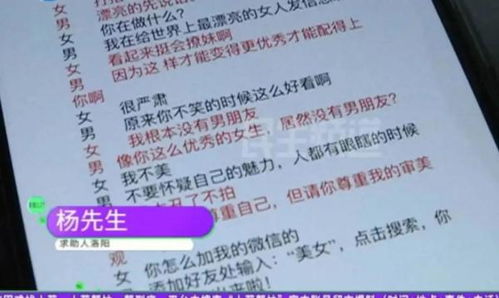 女
男 漂亮的先说话
女 你在做什么？
男 我在给世界上最漂亮的女人发信息
女 看起来挺会撩妹啊
男 因为这样才能变得更优秀才能配得上
你啊
女 很严肃
男 原来你不笑的时候这么好看啊
女 我根本没有男朋友
男 像你这么优秀的女生，居然没有男朋友？
女 我不美
男 不要怀疑自己的魅力，人都有眼瞎的时候
丑了不拍
尊重自己，但请你尊重我的审美
观
女 你怎么加我的微信的
男 添加好友处输入：“美女”，点击搜索，你
出来啦！
民生频道
杨先生
求助人洛阳